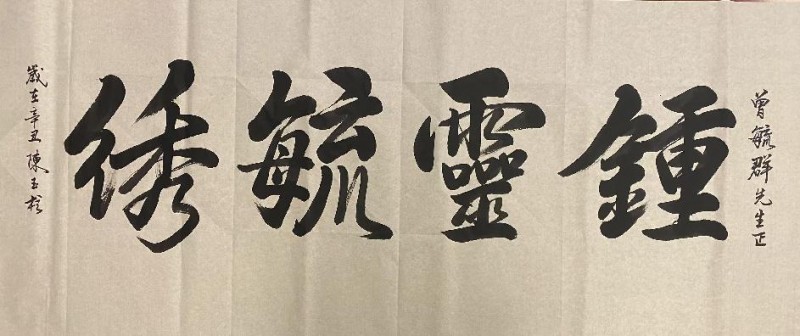 曾毓群先生正
鍾靈毓绣
歲在辛丑陳玉